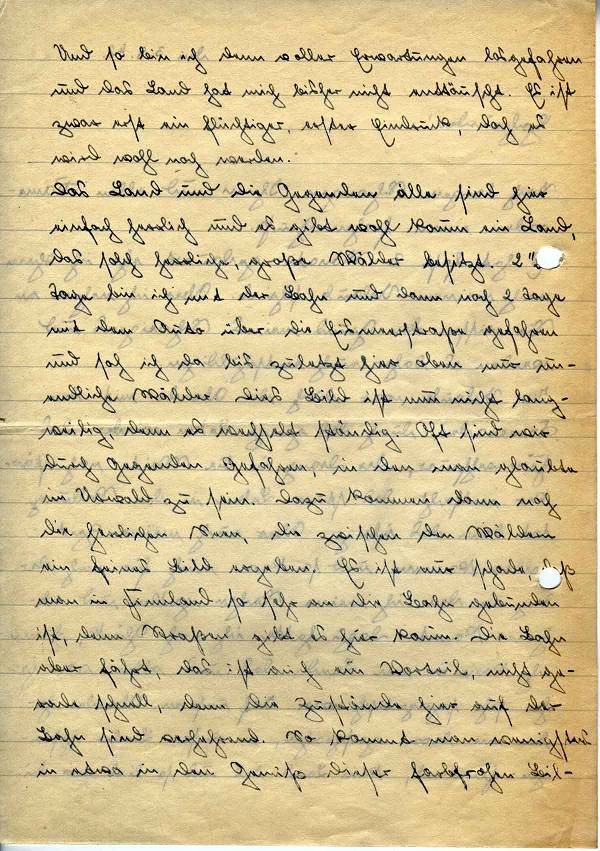 Und so bin ich denn voller Erwartungen losgefahren
und das Land hat mich bisher nicht enttäuscht. Es ist
zwar erst ein flüchtiger, erster Eindruck, doch es
wird wohl noch werden.
Das Land und die Gegenden alle sind hier
einfach herrlich und es gibt wohl kaum ein Land,
das solch herrliche, große Wälder besitzt. 2
Tage bin ich mit der Bahn und dann noch 2 Tage
mit dem Auto über die Eismeerstraße gefahren
und sah ich da bis zuletzt hier oben nur un-
endliche Wälder. Dies Bild ist nun nicht lang-
weilig, denn es wechselt ständig. Oft sind wir
durch Gegenden gefahren, in den man glaubte
im Urwald zu sein. Dazu kommen dann noch
die herrlichen Seen, die zwischen den Wäldern
ein feines Bild ergeben. Es ist nur schade, daß
man in Finnland so sehr an die Bahn gebunden
ist, denn Straßen gibt es hier kaum. Die Bahn
aber fährt, das ist auch ein Vorteil, nicht ge-
rade schnell, denn die Zustände hier auf der
Bahn sind verheerend. So kommt man wenigstens
in etwa in den Genuß dieser farbfrohen Bil-